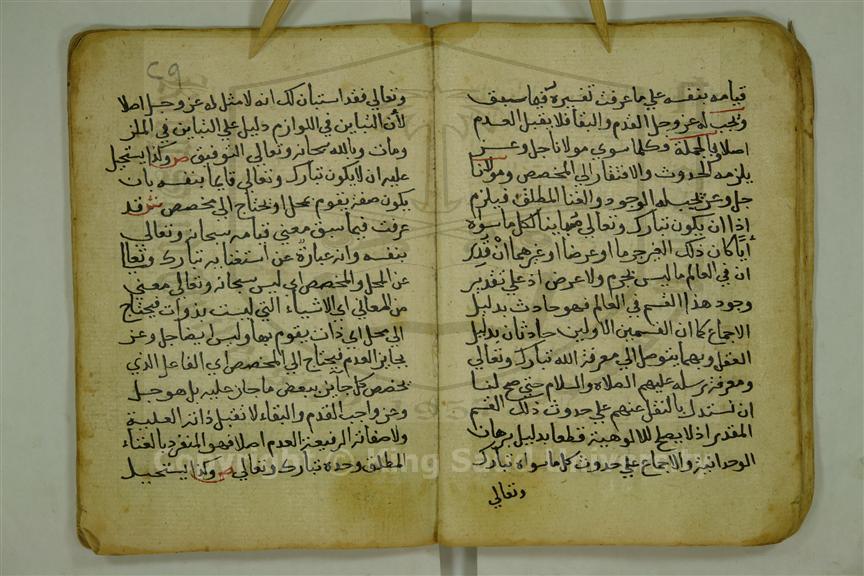 قيامه بنفسه علي ما عرفت تفسيره فيما سبق
وتجب له عز وجل القدم والبقا فلا يقبل العدم
اصلا وبالجملة وكلما سوي مولانا جل وعز
يلزمه الحدوث والافتقار الي المخصص ومولانا
جل وعز يجب له الوجود والغنا المطلق فيلزم
اذا ان يكون تبارك وتعالي مباينا لكل ما سواه
أيًا كان ذلك الغير جرما او عرضا او غيرهما ان قدر
ان في العالم ما ليس بجرم ولا عرض اذ علي تقدير
وجود هذا القسم في العالم فهو حادث بدليل
الاجماع كما ان القسمين الاولين حادثان بدليل
العقل وبهما يتوصل الي معرفة الله تبارك وتعالي
ومعرفة رسله عليهم الصلاة والسلام حتي صح لنا
ان نستدل بالنقل عنهم علي حدوث ذلك القسم
المقدر اذ لا يصلح للالوهية قطعا بدليل برهان
الوحدانية والاجماع علي حدوث كل ما سواه تبارك
وتعالي
٢٩
وتعالي فقد استبان لك انه لا مثل له عز وجل اصلا
لأن التباين في اللوازم دليل علي التباين في الملز
ومات وبالله سبحانه وتعالي التوفيق ص وكذا يستحيل
عليه ان لا يكون تبارك وتعالي قايما بنفسه بان
يكون صفة يقوم بمحل او يحتاج الي مخصص ش قد
عرفت فيما سبق معني قيامه سبحانه وتعالي
بنفسه وانه عبارة عن استغنايه تبارك وتعالي
عن المحل والمخصص اي ليس سبحانه وتعالي معني
من المعاني اي الاشياء التي ليست بذوات فيحتاج
الي محل اي ذات يقوم بها وليس ايضا جل وعز
بجايز العدم فيحتاج الي المخصص اي الفاعل الذي
يخصص كل جايز ببعض ما جاز عليه بل هو جل
وعز واجب القدم والبقاء لا تقبل ذاته العلية
ولا صفاته الرفيعة العدم اصلا فهو المنفرد بالغناء
المطلق وحده تبارك وتعالي ص وكذا يستحيل
Copyright © King Saud University